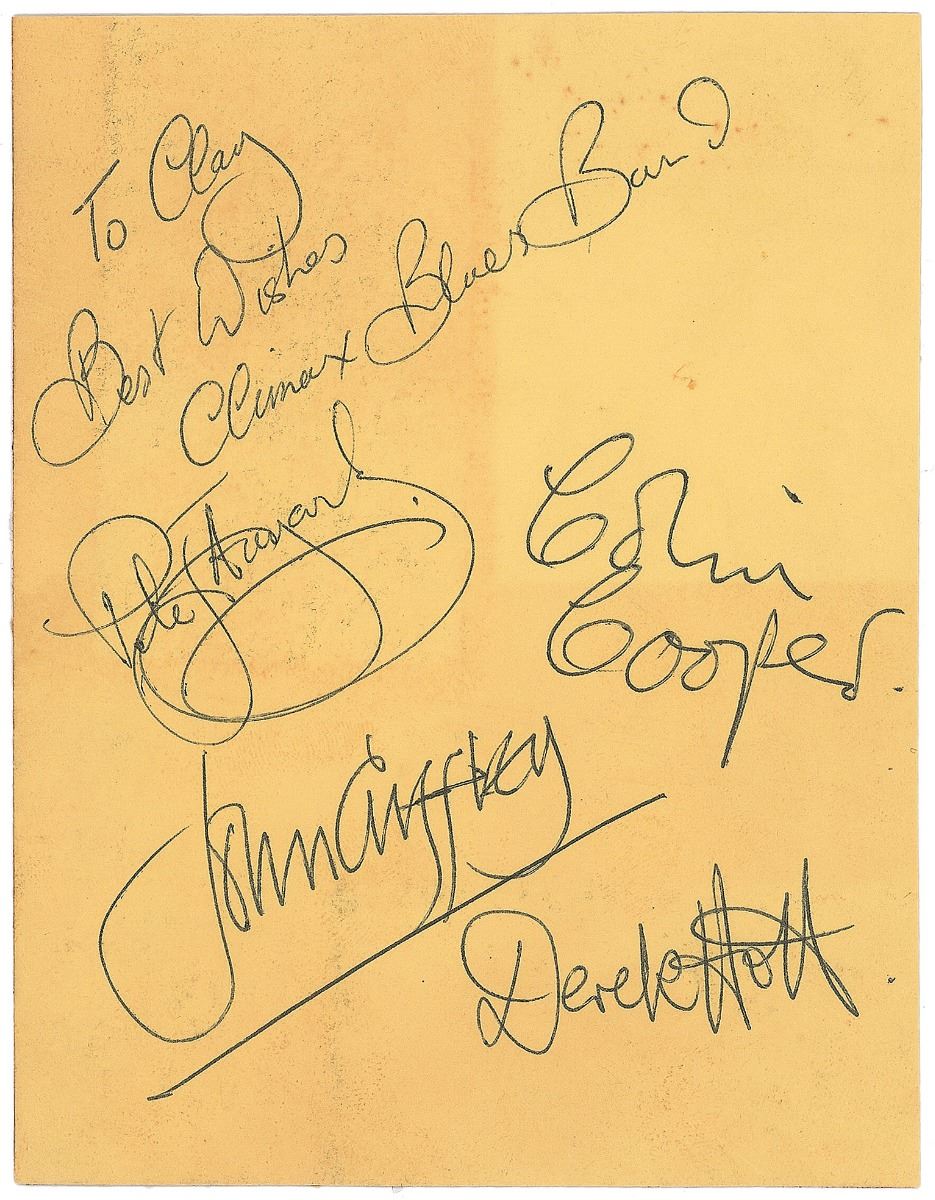 To Clay
Best Wishes
Climax Blues Band
Pete Haycock
Colin
Cooper.
John Cuffley
Derek Holt.